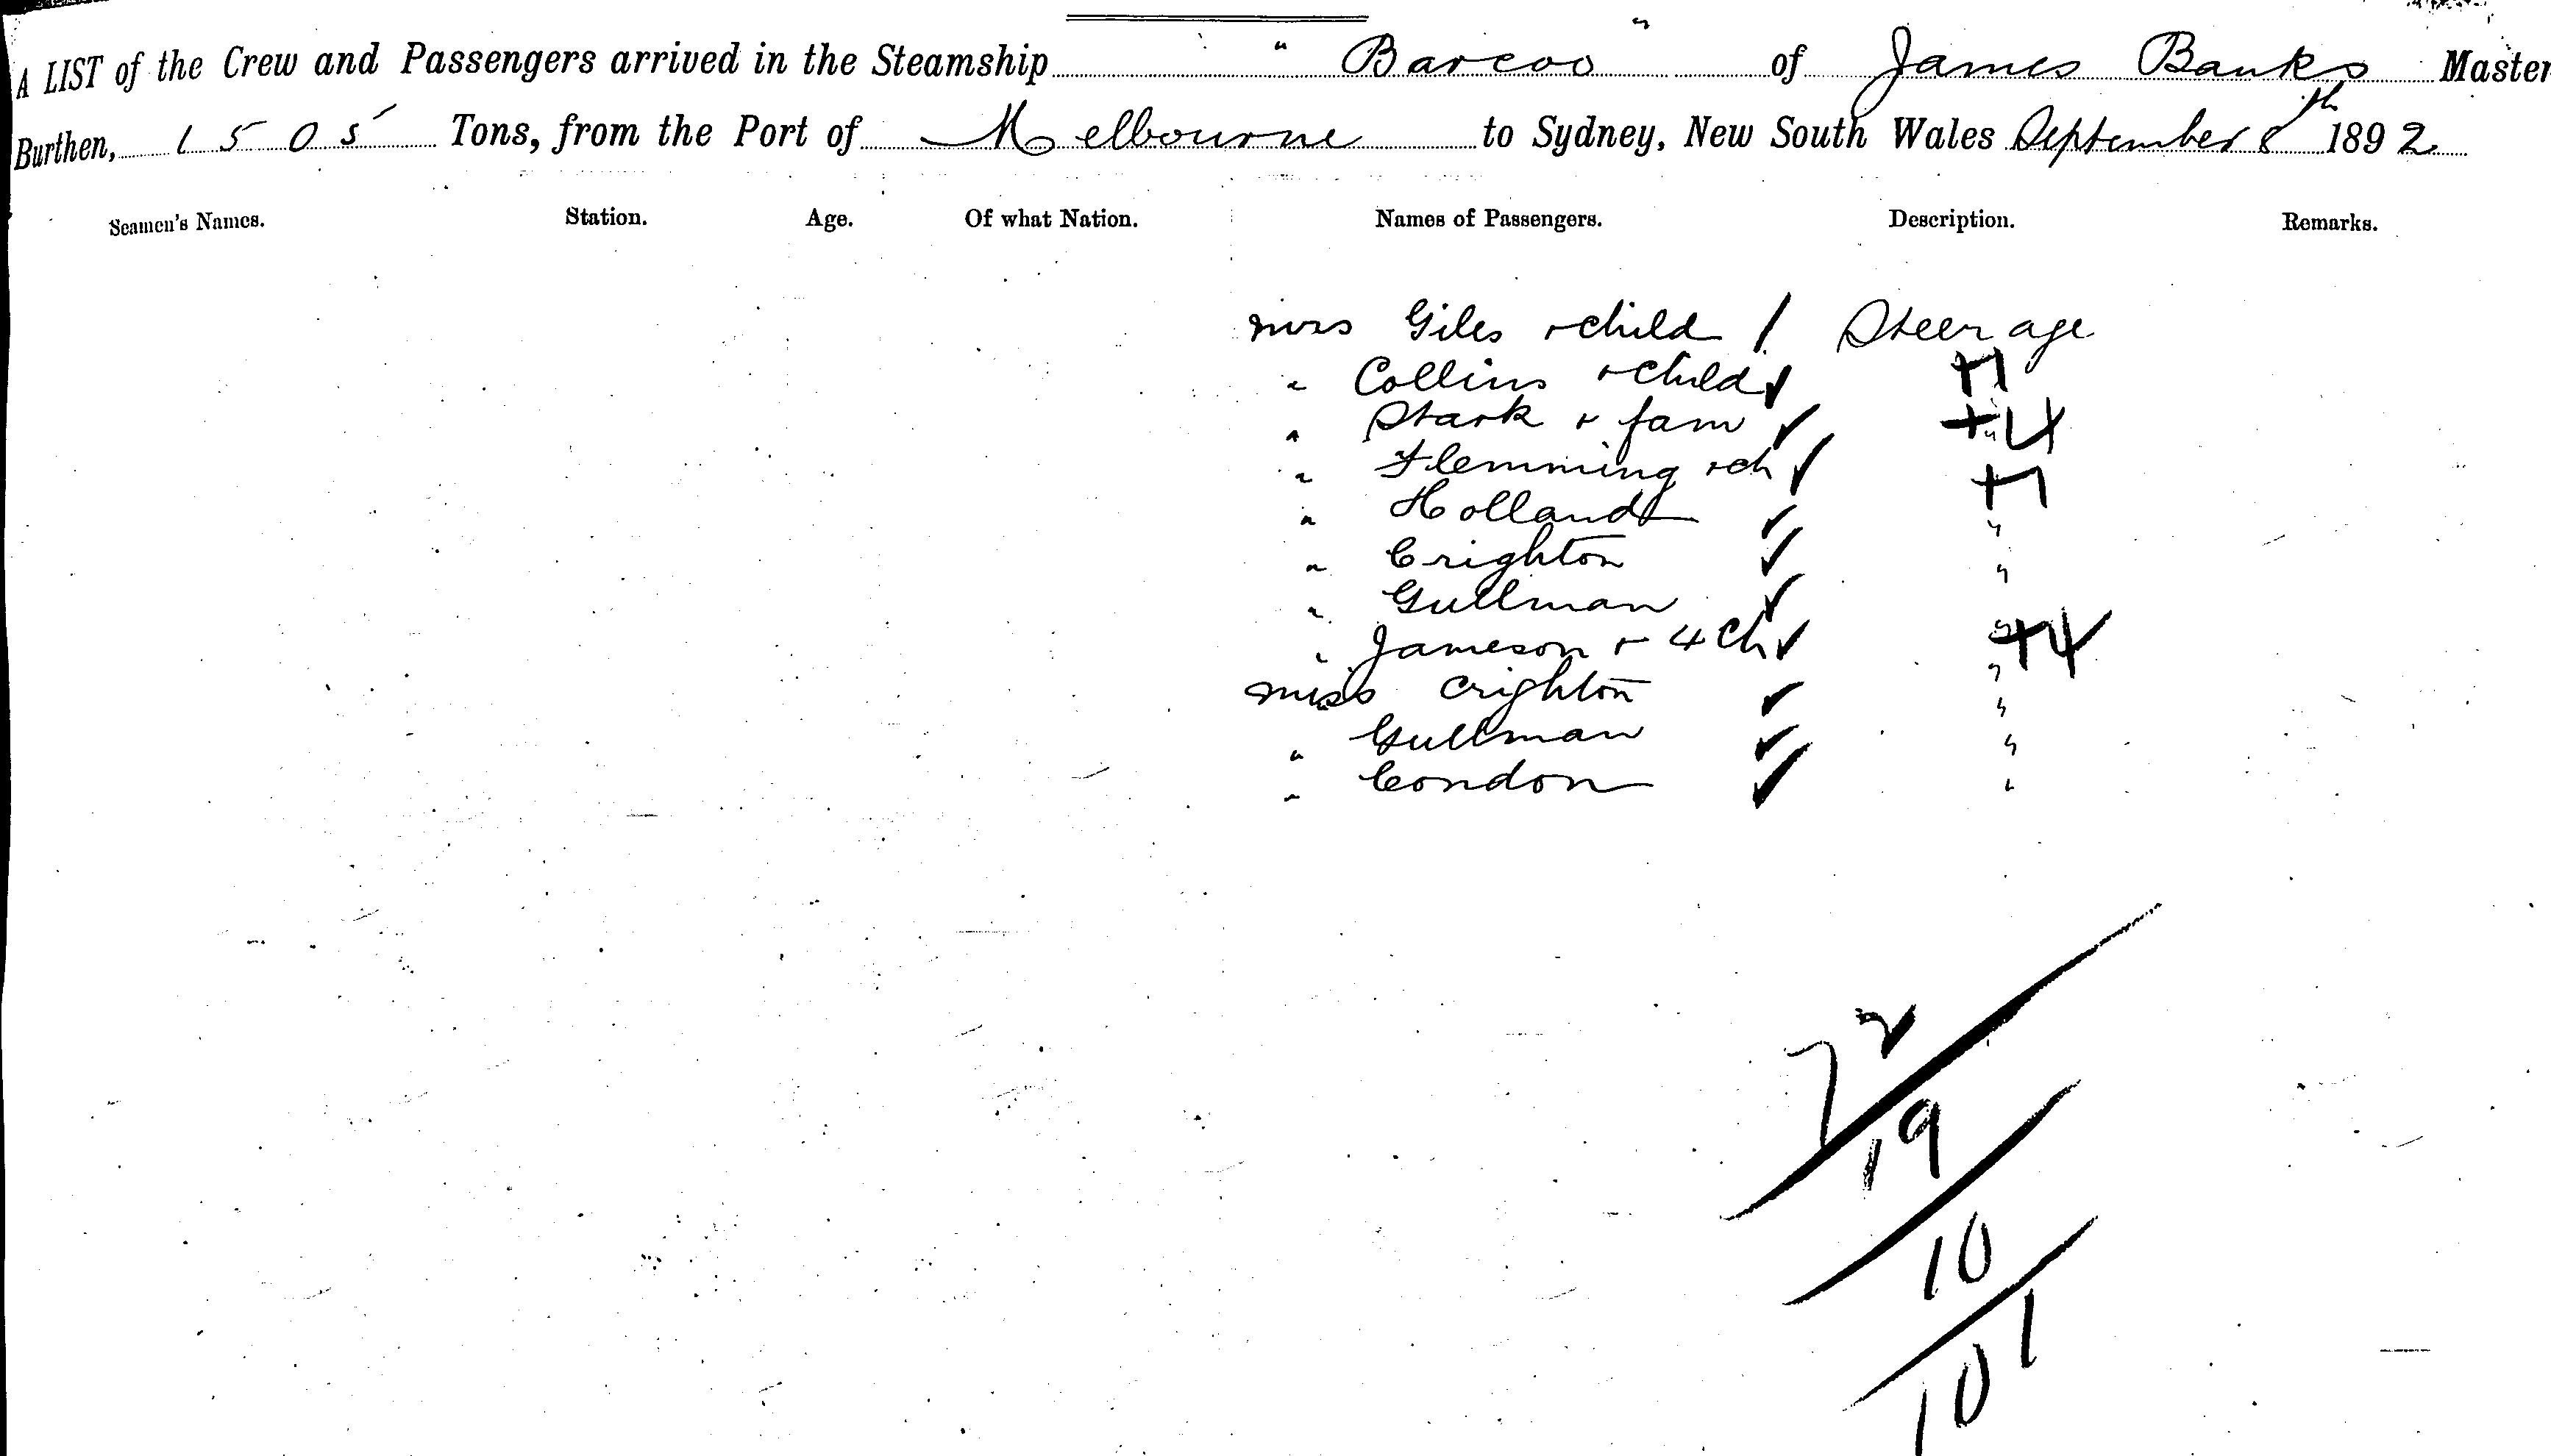 A LIST of the Crew and Passengers arrived in the Steamship "Barcoo" of James Banks Master
Burthen, 1505 Tons, from the Port of Melbourne to Sydney, New South Wales September 8th 1892
Seamen's Names. Station. Age. Of what Nation. Names of Passengers. Description. Remarks.
Mrs Giles + child / Steerage
" Collins + child ✓ +1
" Stark + fam ✓ " +4
" Flemming + ch ✓ +1
" Holland ✓ "
" Crighton ✓ "
" Gullman ✓ "
" Jameson + 4 Ch ✓ " +4
Miss Crighton ✓ "
" Gullman ✓ "
" Condon ✓ "
72
19
10
101